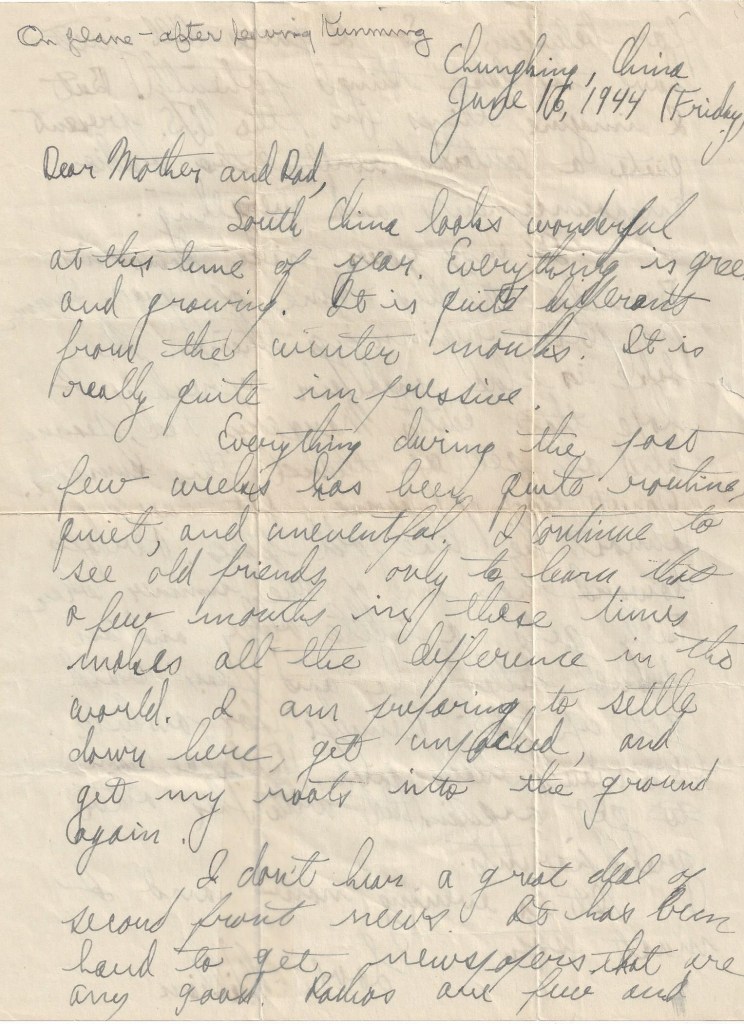 On plane - after leaving Kunming
Chungking, China
June 16, 1944 (Friday)
Dear Mother and Dad,
South China looks wonderful
at this time of year. Everything is gree
and growing. It is quite different
from the winter months. It is
really quite impressive.
Everything during the past
few weeks has been quite routine,
quiet, and uneventful. I continue to
see old friends only to learn that
a few months in these times
makes all the difference in the
world. I am preparing to settle
down here, get unpacked, and
get my roots into the ground
again.
I don't hear a great deal of
second front news. It has been
hard to get newspapers that are
any good. Radios are few and